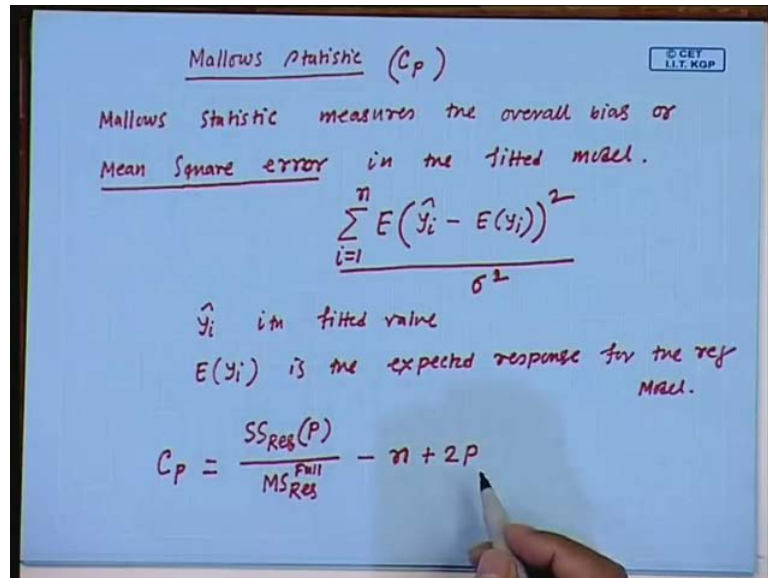 Mallows Statistic (Cp)
© CET
I.I.T. KGP
Mallows Statistic measures the overall bias or
Mean Square error in the fitted model.
\frac{\sum_{i=1}^{n} E(\hat{y}_i - E(y_i))^2}{\sigma^2}
\hat{y}_i ith fitted value
E(y_i) is the expected response for the reg
Model.
C_p = \frac{SS_{Res}(P)}{MS_{Res}^{Full}} - n + 2P